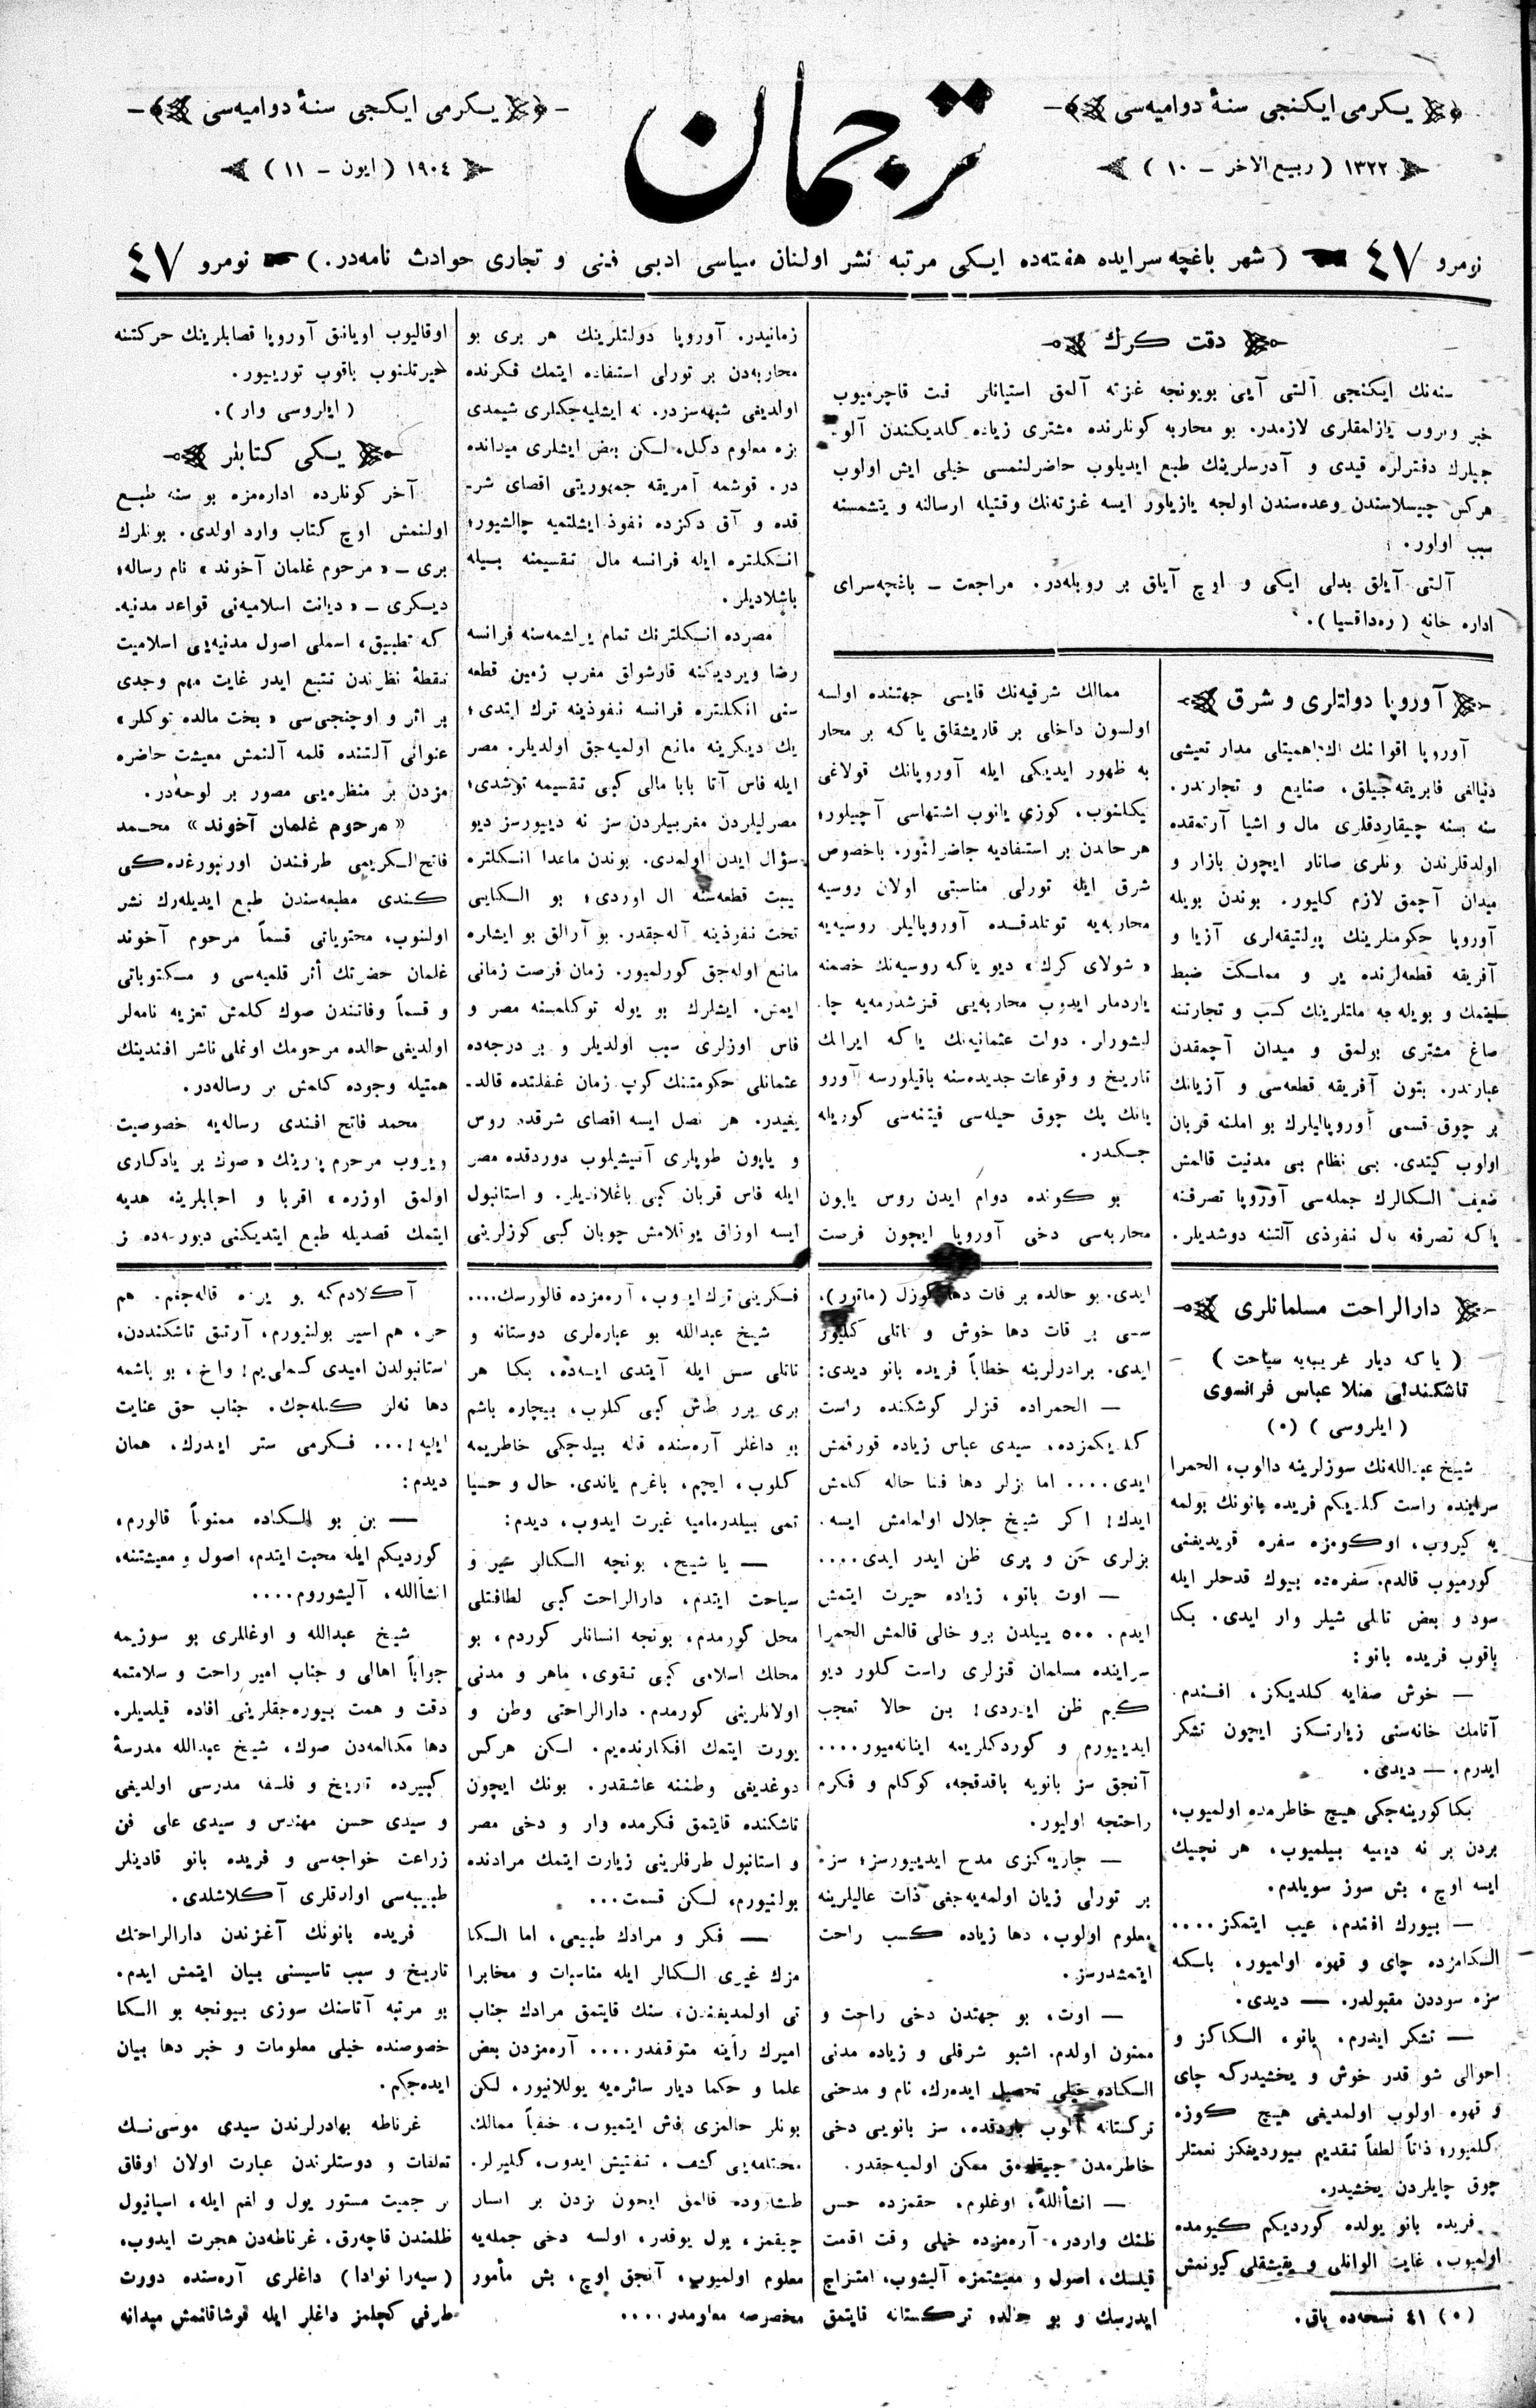 يكرمی ايكنجی سنۀ دواميه‌سی
١٣٢٢ ( ربيع الاخر – ١٠ )
ترجمان
يكرمی ايكنجی سنۀ دواميه‌سی
١٩٠٤ ( ايون – ١١ )
نومرو ٤٧ ( شهر باغچه سرايده هفته‌ده ايكی مرتبه نشر اولنان سياسی ادبی فنی و تجاری حوادث نامه‌در. ) نومرو ٤٧
دقت كرك
سنه‌نك ايكنجی آلتی آيی بويونجه غزته آلمق استيانلر فت قاچرميوب
خبر ويروب يازلمقلری لازمدر. بو محاربه كونلرنده مشتری زياده كلديكندن آلو-
جيلرك دفترلره قيدی و آدرسلرينك طبع ايديلوب حاضرلنمسی خيلی ايش اولوب
هركس چيسلاسندن وعده‌سندن اولجه يازيلور ايسه غزته‌نك وقتيله ارسالنه و يتشمسنه
سبب اولور.
آلتی آيلق بدلی ايكی و اوچ آيلق بر روبله‌در. مراجعت – باغچه‌سرای
اداره خانه ( ره‌داقسيا ).
آوروپا دولتلری و شرق
آوروپا اقوامنك اك اهميتلی مدار تعيشی
دنيالغی فابريقه‌جيلق، صنايع و تجارتدر.
سنه بسنه چيقاردقلری مال و اشيا آرتمقده
اولدقلرندن ونلری صاتار ايچون بازار و
ميدان آچمق لازم كليور. بوندن بويله
آوروپا حكومتلرينك پولتيقه‌لری آزيا و
آفريقه قطعه‌لرنده ير و مملكت ضبط
ايتمك و بويله‌جه ملتلرينك كسب و تجارتنه
صاغ مشتری بولمق و ميدان آچمقدن
عبارتدر. بتون آفريقه قطعه‌سی و آزيانك
بر چوق قسمی آوروپاليلرك بو املنه قربان
اولوب كيتدی. بی نظام بی مدنيت قالمش
ضعيف الكالرك جمله‌سی آوروپا تصرفنه
ياكه تصرفه بدل نفوذی آلتنه دوشديلر.
ممالك شرقيه‌نك قايسی جهتنده اولسه
اولسون داخلی بر قاريشقلق ياكه بر محار
به ظهور ايديكی ايله آوروپانك قولاغی
تيكلنوب، كوزی يانوب اشتهاسی آچيلور؛
هر حالدن بر استفاديه حاضرلنور. باخصوص
شرق ايله تورلی مناسبتی اولان روسيه
محاربه‌يه توتلدقده آوروپاليلر روسيه‌يه
« شولای كرك » ديو ياكه روسيه‌نك خصمنه
ياردملر ايدوب محاربه‌يی قيزشدرمه‌يه چا-
ليشورلر. دولت عثمانيه‌نك ياكه ايرانك
تاريخ و وقوعات جديده‌سنه باقيلورسه آورو
پانك پك چوق حيله‌سی فيتنه‌سی كوريله
جكدر.
بو كونده دوام ايدن روس ياپون
محاربه‌سی دخی آوروپا ايچون فرصت
زمانيدر. آوروپا دولتلرينك هر بری بو
محاربه‌دن بر تورلی استفاده ايتمك فكرنده
اولديغی شبهه‌سزدر. نه ايشليه‌جكلری شيمدی
بزه معلوم دكل، لكن بعض ايشلری ميدانده
در. قوشمه آمريقه جمهوريتی اقصای شر-
قده و آق دكزده نفوذ ايشلتميه چالشيور؛
انكلتره ايله فرانسه مال تقسيمنه بيله
باشلاديلر.
مصرده انكلترنك تمام يرلشمه‌سنه فرانسه
رضا ويرديكنه قارشولق مغرب زمين قطعه
سنی انكلتره فرانسه نفوذينه ترك ايتدی؛
يك ديكرينه مانع اولميه‌جق اولديلر. مصر
ايله فاس آتا بابا مالی كبی تقسيمه توشدی؛
مصرليلردن مغربيلردن سز نه دييورسز ديو
سؤال ايدن اولمدی. بوندن ماعدا انكلتره
تيبت قطعه‌سنه ال اوردی؛ بو الكايی
تحت نفوذينه آله‌جقدر. بو آرالق بو ايشلره
مانع اوله‌جق كورلميور. زمان فرصت زمانی
ايمش. ايشلرك بو يوله توكلمسنه مصر و
فاس اوزلری سبب اولديلر و بر درجه‌ده
عثمانلی حكومتنك كوپ زمان غفلتده قالد-
يغيدر. هر نصل ايسه اقصای شرقده روس
و ياپون طوپلری آتيشيلوب دوردقده مصر
ايله فاس قربان كبی باغلانديلر. و استانبول
ايسه اوزاق يوتلامش چوبان كبی كوزلرينی
اوقاليوب اويانق آوروپا قصابلرينك حركتنه
خيرتلنوب باقوب تورييور.
( ايلروسی وار ).
يكی كتابلر
آخر كونلرده اداره‌مزه بو سنه طبع
اولنمش اوچ كتاب وارد اولدی. بونلرك
بری – « مرحوم غلمان آخوند » نام رساله؛
ديكری – « ديانت اسلاميه‌نی قواعد مدنيه-
كه تطبيق، اسملی اصول مدنيه‌يی اسلاميت
نقطۀ نظرندن تتبع ايدر غايت مهم وجدی
بر اثر و اوچنجی‌سی « بخت مالده توكلر »
عنوانی آلتنده قلمه آلنمش معيشت حاضره
مزدن بر منظره‌يی مصور بر لوحه‌در.
« مرحوم غلمان آخوند » محمد
فاتح الكريمی طرفندن اورنبورغده‌كی
كندی مطبعه‌سندن طبع ايديله‌رك نشر
اولنوب، محتوياتی قسماً مرحوم آخوند
غلمان حضرتك أثر قلميه‌سی و مكتوباتی
و قسماً وفاتندن صوك كلمش تعزيه نامه‌لر
اولديغی حالده مرحومك اوغلی ناشر افندينك
همتيله وجوده كلمش بر رساله‌در.
محمد فاتح افندی رساله‌يه خصوصيت
ويروب مرحوم پدرينك « صوك بر يادكاری
اولمق اوزره » اقربا و احبابلرينه هديه
ايتمك قصديله طبع ايتديكنی
دارالراحت مسلمانلری
( ياكه ديار غريبه‌يه سياحت )
تاشكندلی منلا عباس فرانسوی
( ايلروسی ) (*)
شيخ عبدالله‌نك سوزلرينه دالوب، الحمرا
سراينده راست كلديكم فريده بانونك بولمه
يه كيروب، اوكومزه سفره قريديغنی
كورميوب قالدم. سفره‌ده بيوك قدحلر ايله
سود و بعض تاتلی شيلر وار ايدی. بكا
باقوب فريده بانو:
— خوش صفايه كلديكز، افندم.
آتامك خانه‌سنی زيارتكز ايچون تشكر
ايدرم. — ديدی.
بكا كورينه‌جكی هيچ خاطرمده اولميوب،
بردن بر نه ديميه بيلميوب، هر نچيك
ايسه اوچ، بش سوز سويلدم.
— بيورك افندم، عيب ايتمكز....
الكامزده چای و قهوه اولميور، باسكه
سزه سوددن مقبولدر. — ديدی.
— تشكر ايدرم، بانو، الكاكز و
احوالی شو قدر خوش و يخشيدركه چای
و قهوه اولوب اولمديغی هيچ كوزه
كلميور؛ ذاتاً لطفاً تقديم بيورديغكز نعمتلر
چوق چايلردن يخشيدر.
فريده بانو يولده كورديكم كيومده
اولميوب، غايت الوانلی و يقيشقلی كيونمش
(*) ٤١ نسخه‌ده باق.
ايدی. بو حالده بر قات دها كوزل ( ماتور )،
سسی بر قات دها خوش و تاتلی كليور
ايدی. برادرلرينه خطاباً فريده بانو ديدی:
— الحمراده قزلر كوشكنده راست
كلديكمزده، سيدی عباس زياده قورقمش
ايدی.... اما بزلر دها فنا حاله كلمش
ايدك! اكر شيخ جلال اولمامش ايسه.
بزلری جن و پری ظن ايدر ايدی....
— اوت بانو، زياده حيرت ايتمش
ايدم. ٥٠٠ ييلدن برو خالی قالمش الحمرا
سراينده مسلمان قزلری راست كلور ديو
كيم ظن ايدردی! بن حالا تعجب
ايدييورم و كوردكلريمه اينانه‌ميور....
آنجق سز بانويه باقدقجه، كوكلم و فكرم
راحتجه اوليور.
— جاريه‌كزی مدح ايدييورسز؛ سزه
بر تورلی زيان اولمه‌يه‌جغی ذات عاليلرينه
معلوم اولوب، دها زياده كسب راحت
ايتمشدرسز.
— اوت، بو جهتدن دخی راحت و
ممنون اولدم. اشبو شرفلی و زياده مدنی
الكاده خيلی تحصيل ايده‌رك، نام و مدحنی
تركستانه آلوب باردقده، سز بانويی دخی
خاطرمدن چيقلمق ممكن اولميه‌جقدر.
— انشأالله، اوغلوم. حقمزده حس
ظنك واردر، آره‌مزده خيلی وقت اقامت
قيلسك، اصول و معيشتمزه آليشوب، امتزاج
ايدرسك و بو حالده تركستانه قايتمق
فكرينی ترك ايدوب، آره‌مزده قالورسك....
شيخ عبدالله بو عباره‌لری دوستانه و
تاتلی سس ايله آيتدی ايسه‌ده، بكا هر
بری برر طاش كبی كلوب، بيچاره باشم
بو داغلر آره‌سنده قاله بيله‌جكی خاطريمه
كلوب، ايچم، باغرم ياندی. حال و حسيا
تمی بيلدرماميه غيرت ايدوب، ديدم:
— يا شيخ، بونجه الكالر سير و
سياحت ايتدم، دارالراحت كبی لطافتلی
محل كورمدم، بونجه انسانلر كوردم، بو
محلك اسلامی كبی تقوی، ماهر و مدنی
اولانلرينی كورمدم. دارالراحتی وطن و
يورت ايتمك افكارنده‌يم. لكن هركس
دوغديغی وطننه عاشقدر. بونك ايچون
تاشكنده قايتمق فكرمده وار و دخی مصر
و استانبول طرفلرينی زيارت ايتمك مرادنده
بولنيورم، لكن قسمت...
— فكر و مرادك طبيعی، اما الكا
مزك غيری الكالر ايله مناسبات و مخابرا
تی اولمديغندن، سنك قايتمق مرادك جناب
اميرك رأينه متوقفدر.... آره‌مزدن بعض
علما و حكما ديار سائره‌يه يوللانيور، لكن
بونلر حالمزی فاش ايتميوب، خفياً ممالك
مختلفه‌يی كشف، تفتيش ايدوب، كليرلر.
طشارده قالمق ايچون بزدن بر انسان
چيقمز، يول يوقدر، اولسه دخی جمله‌يه
معلوم اولميوب، آنجق اوچ، بش مأمور
مخصوصه معلومدر....
آكلادم‌كه بو يرده قاله‌جغم. هم
حر، هم اسير بولنيورم، آرتق تاشكنددن،
استانبولدن اميدی كسملی‌يم! واخ، بو باشمه
دها نه‌لر كله‌جك. جناب حق عنايت
ايليه!... فكرمی ستر ايدرك، همان
ديدم:
— بن بو الكاده ممنوناً قالورم،
كورديكم ايله محبت ايتدم، اصول و معيشتنه،
انشأالله، آليشوروم....
شيخ عبدالله و اوغللری بو سوزيمه
جواباً اهالی و جناب امير راحت و سلامتمه
دقت و همت بيوره‌جقلرينی افاده قيلديلر.
دها مكالمه‌دن صوك، شيخ عبدالله مدرسۀ
كبيرده تاريخ و فلسفه مدرسی اولديغی
و سيدی حسن مهندس و سيدی علی فن
زراعت خواجه‌سی و فريده بانو قادينلر
طبيبه‌سی اولدقلری آكلاشلدی.
فريده بانونك آغزندن دارالراحتك
تاريخ و سبب تاسيسنی بيان ايتمش ايدم.
بو مرتبه آتاسنك سوزی بيونجه بو الكا
خصوصنده خيلی معلومات و خبر دها بيان
ايده‌جكم.
غرناطه بهادرلرندن سيدی موسی‌نك
تعلقات و دوستلرندن عبارت اولان اوفاق
بر جميت مستور يول و لغم ايله، اسپانيول
ظلمندن قاچه‌رق. غرناطه‌دن هجرت ايدوب،
( سيه‌را نوادا ) داغلری آره‌سنده دورت
طرفی كچلمز داغلر ايله قوشاقانمش ميدانه